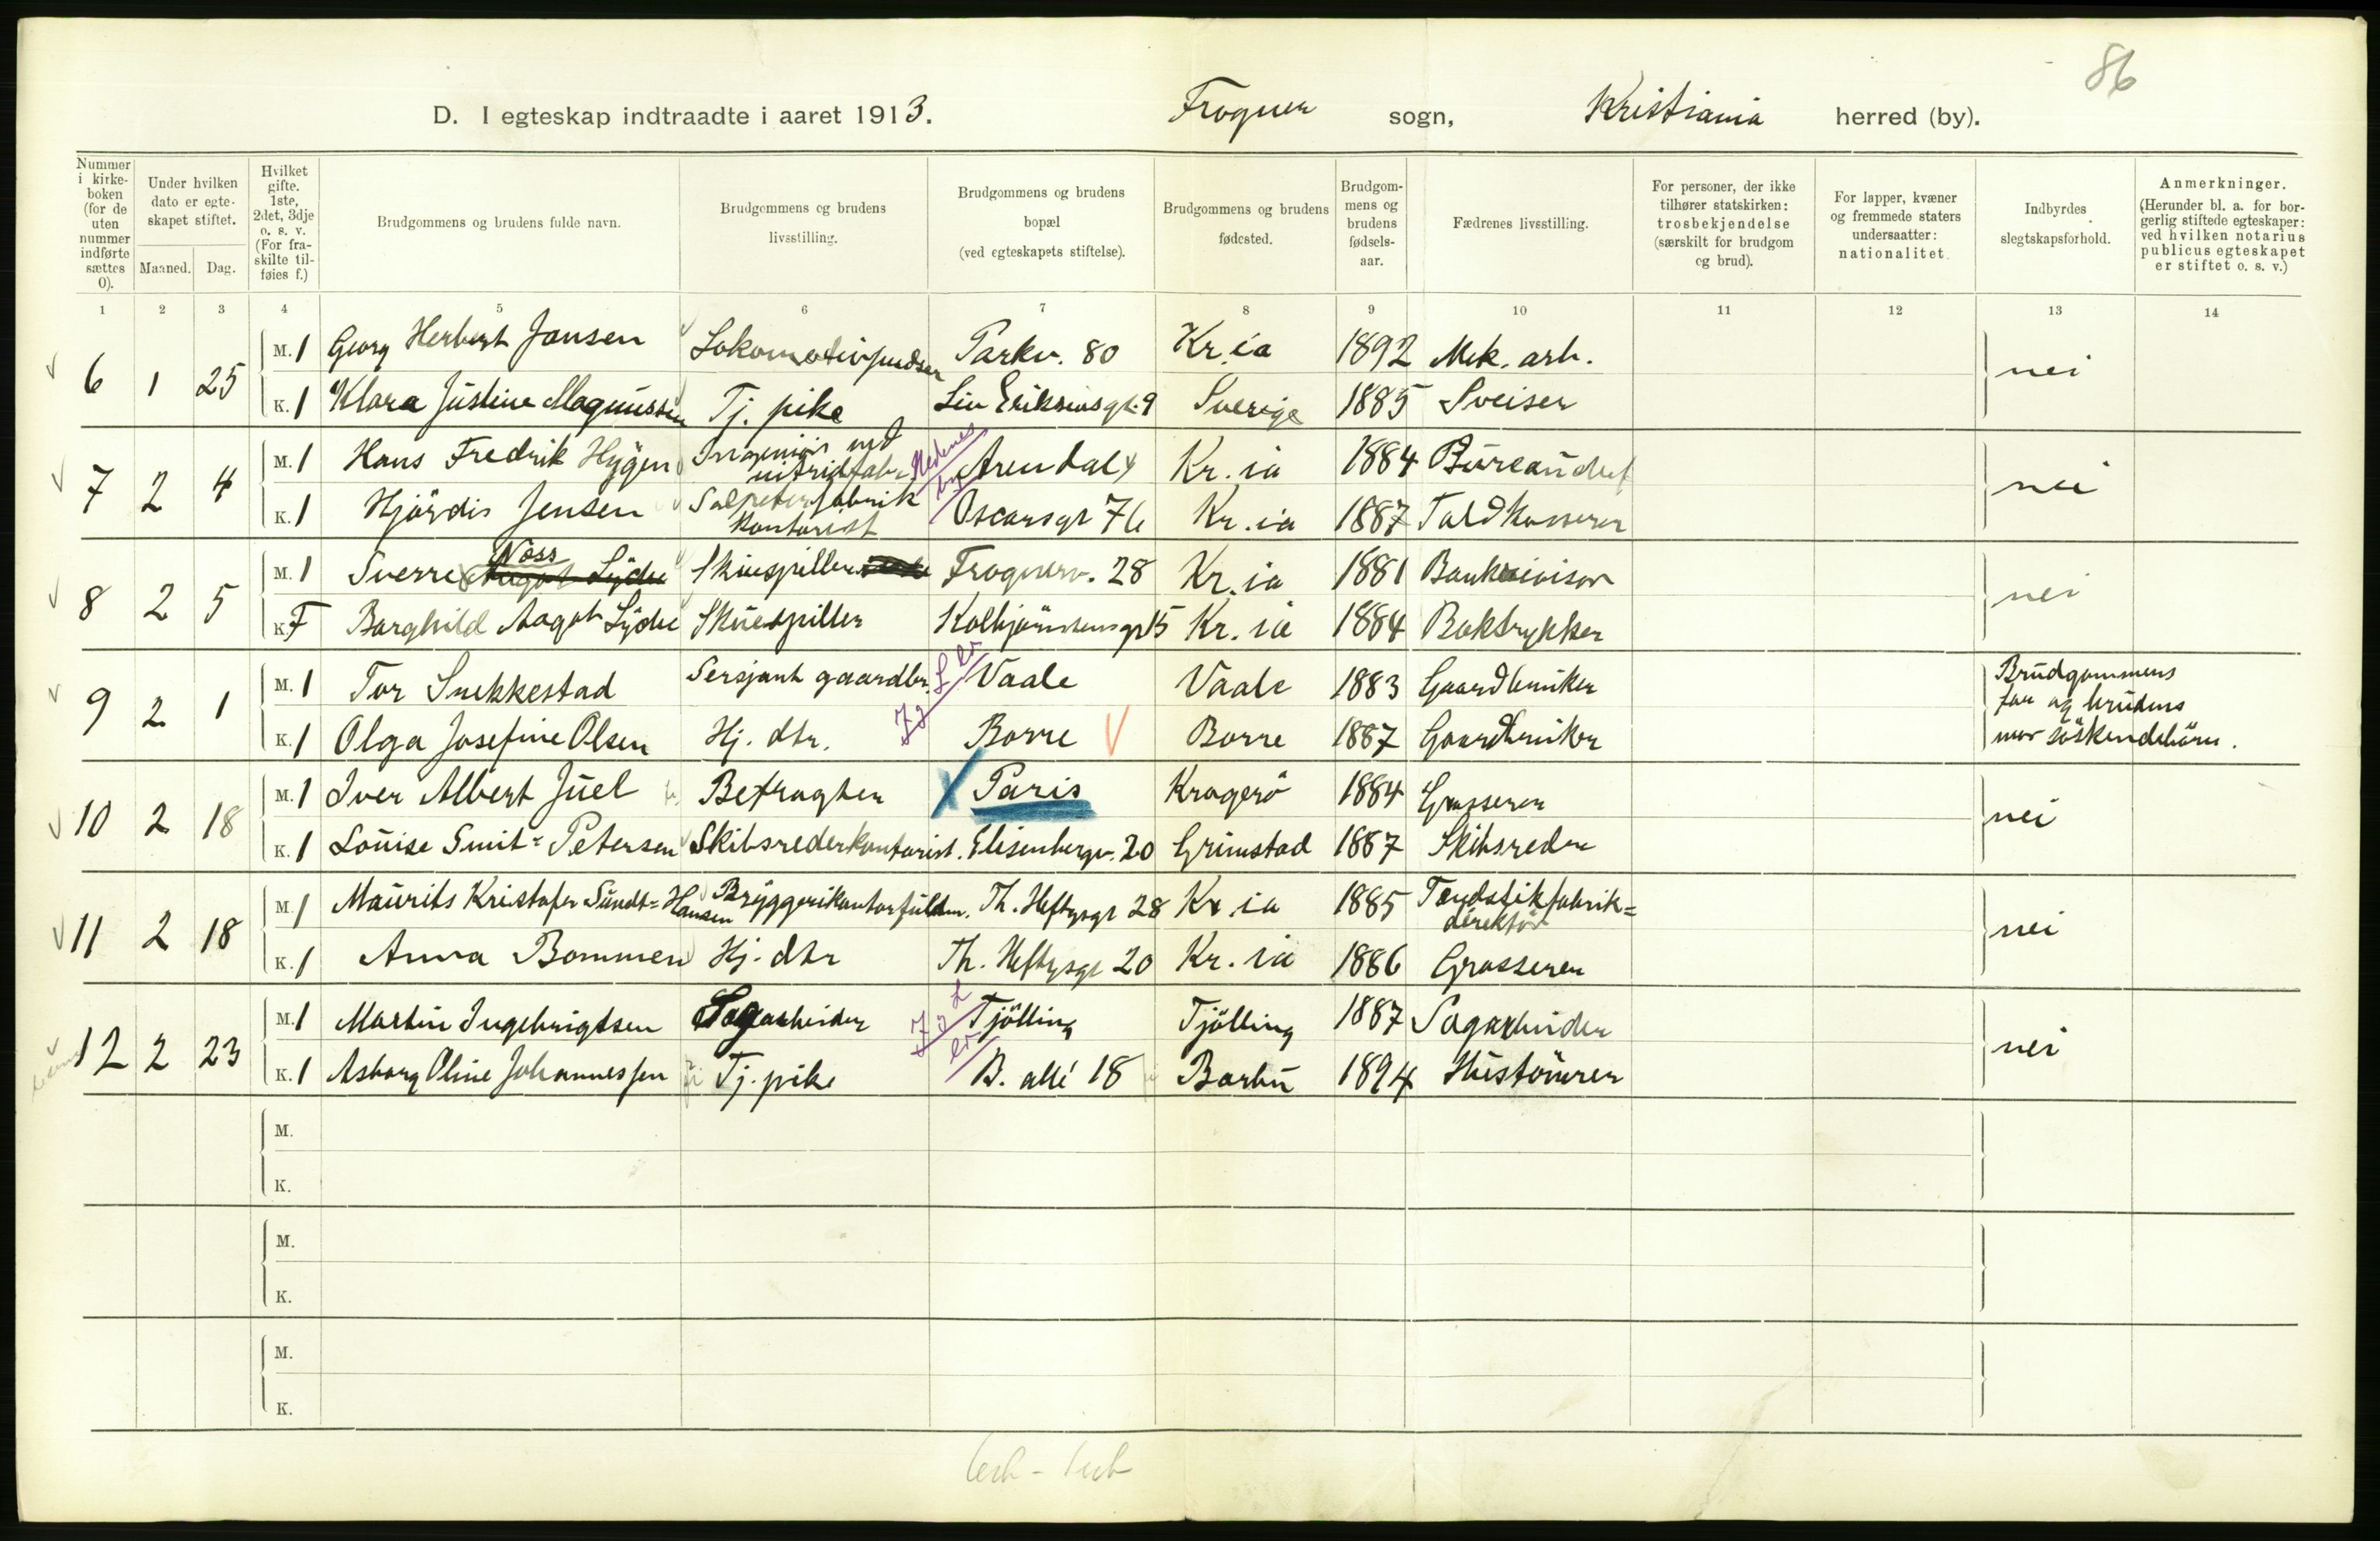 86
D. I egteskap indtraadte i aaret 1913. Frogner sogn, Kristiania herred (by).
Nummer i kirke-boken (for de uten nummer indførte sættes 0). Under hvilken dato er egte-skapet stiftet. Maaned. Dag. Hvilket gifte. 1ste, 2det, 3dje o. s. v. (For fra-skilte til-føies f.) Brudgommens og brudens fulde navn. Brudgommens og brudens livsstilling. Brudgommens og brudens bopæl (ved egteskapets stiftelse). Brudgommens og brudens fødested. Brudgom-mens og brudens fødsels-aar. Fædrenes livsstilling. For personer, der ikke tilhører statskirken: trosbekjendelse (særskilt for brudgom og brud). For lapper, kvæner og fremmede staters undersaatter: nationalitet. Indbyrdes slegtskapsforhold. Anmerkninger. (Herunder bl. a. for bor-gerlig stiftede egteskaper: ved hvilken notarius publicus egteskapet er stiftet o. s. v.)
1 2 3 4 5 6 7 8 9 10 11 12 13 14
6 1 25 M. 1 Georg Herbert Jansen Lokomotivpudser Parkv. 80 Kr.ia 1892 Mek. arb. nei
K. 1 Klara Justine Magnussen Tj. pike Leiv Erikssnsgt. 9 Sverige 1885 Sveiser
7 2 4 M. 1 Hans Fredrik Hygen Ingeniør ved nitridfabr. Nedenes Arendal Kr.ia 1884 Bureauchef nei
K. 1 Hjördis Jensen Salpeterfabrik kontorist Oscarsgt 76 Kr.ia 1887 Toldkasserer
8 2 5 M. 1 Sverre Næss Aagot Lydie Skuespiller Frognerv. 28 Kr.ia 1881 Bankrevisor nei
K. F Borghild Aagot Lydie Skuespiller Kolbjørnsensgt 15 Kr.ia 1884 Boktrykker
9 2 1 M. 1 Tor Snekkestad Sersjant gaardbr. Vaale Vaale 1883 Gaardbruker Brudgommens far og brudens mor söskendebörn.
K. 1 Olga Josefine Olsen Hj. dtr. Borre Borre 1887 Gaardbruker
10 2 18 M. 1 Iver Albert Juel Befragter Paris Kragerö 1884 Grosserer nei
K. 1 Louise Smit=Petersen Skibsrederkontorist. Elisenbergv. 20 Grimstad 1887 Skibsreder
11 2 18 M. 1 Maurits Kristofer Sundt=Hansen Bryggerikontorfuldm. Th. Heftysgt 28 Kr.ia 1885 Tændstikfabrik=direktör nei
K. 1 Anna Bommen Hj. dtr Th. Heftysgt 20 Kr.ia 1886 Grosserer
12 2 23 M. 1 Martin Ingebrigtsen Sagarbeider Tjölling Tjölling 1887 Sagarbeider nei
K. 1 Asborg Oline Johannessen Tj. pike B. allé 18 Barbu 1894 Hustömrer
M.
K.
M.
K.
M.
K.